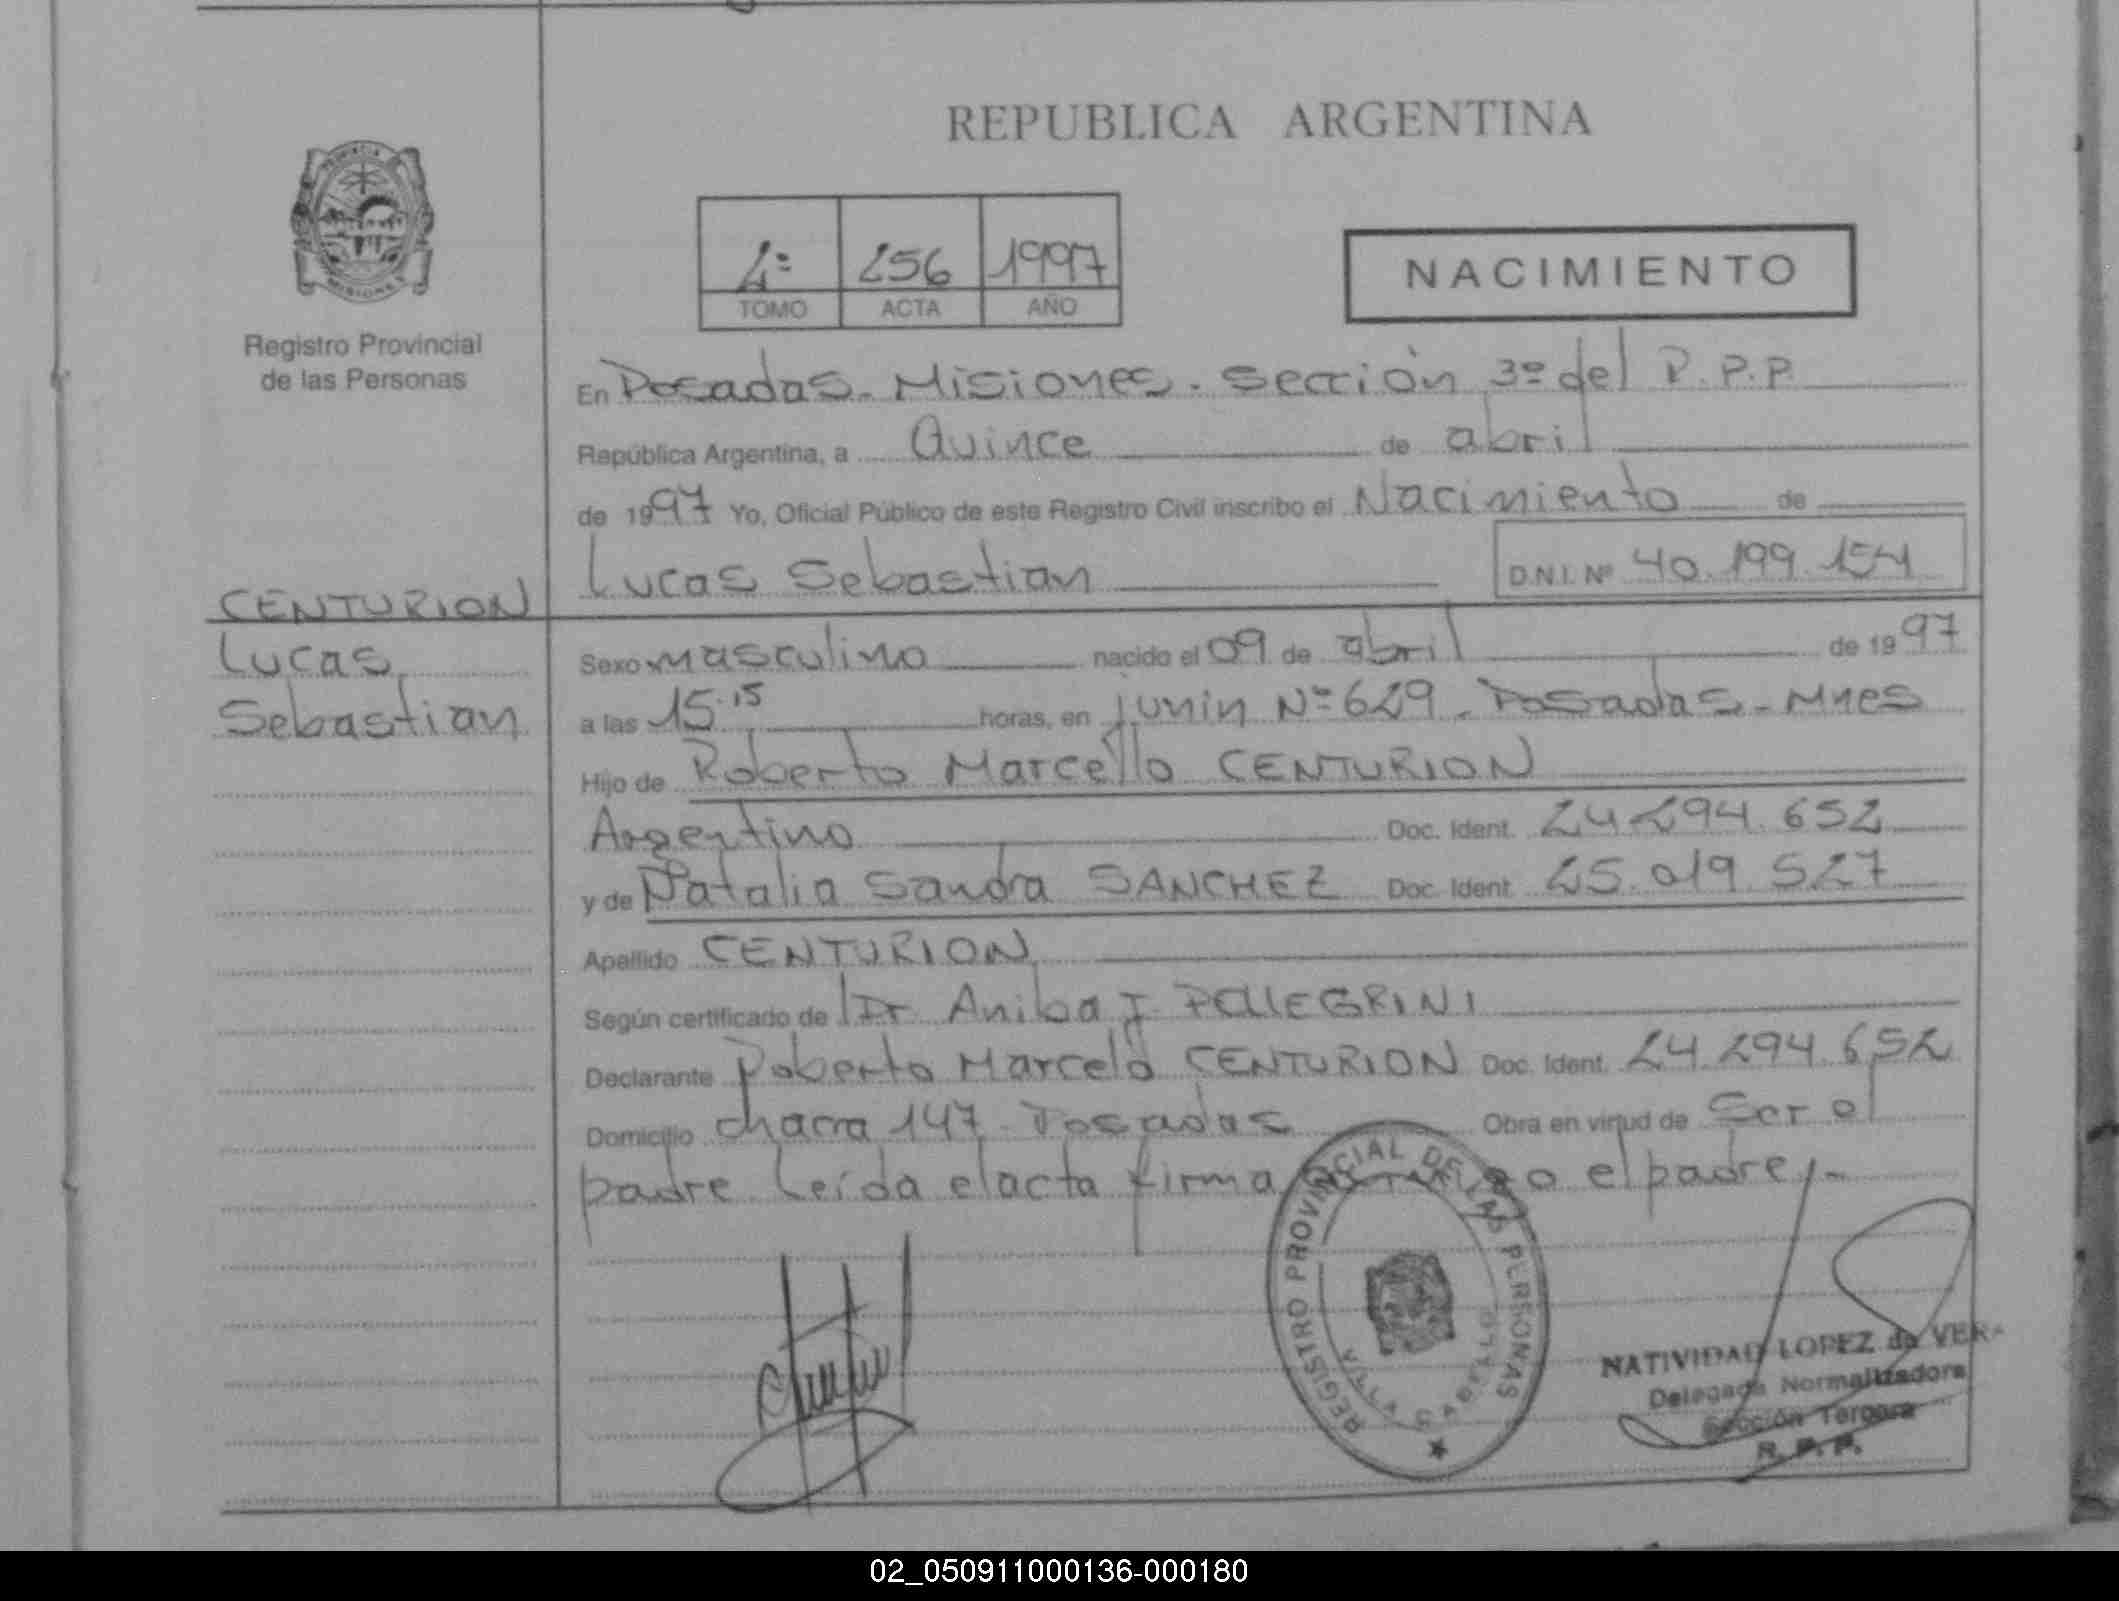 REPUBLICA ARGENTINA
PROVINCIA
MISIONES
Registro Provincial
de las Personas
2º 256 1997
TOMO ACTA AÑO
NACIMIENTO
En Posadas - Misiones - Sección 3º del R.P.P.
República Argentina, a Quince de abril
de 1997 Yo, Oficial Público de este Registro Civil inscribo el Nacimiento de
Lucas Sebastian D.N.I. Nº 40.199.154
CENTURION
Lucas
Sebastian
Sexo masculino nacido el 09 de abril de 1997
a las 15.15 horas, en junin Nº 629 - Posadas - Mnes
Hijo de Roberto Marcello CENTURION
Argentino Doc. Ident. 24.294.652
y de Natalia Sandra SANCHEZ Doc. Ident. 25.019.527
Apellido CENTURION
Según certificado de Dr Anibal J. PELLEGRINI
Declarante Roberto Marcelo CENTURION Doc. Ident. 24.294.652
Domicilio chacra 147 - Posadas Obra en virtud de Ser el
padre Leída el acta firma el padre.-
REGISTRO PROVINCIAL DE LAS PERSONAS
VILLA CABELLO
NATIVIDAD LOPEZ de VERA
Delegada Normalizadora
Sección Tercera
R. P. P.
02_050911000136-000180